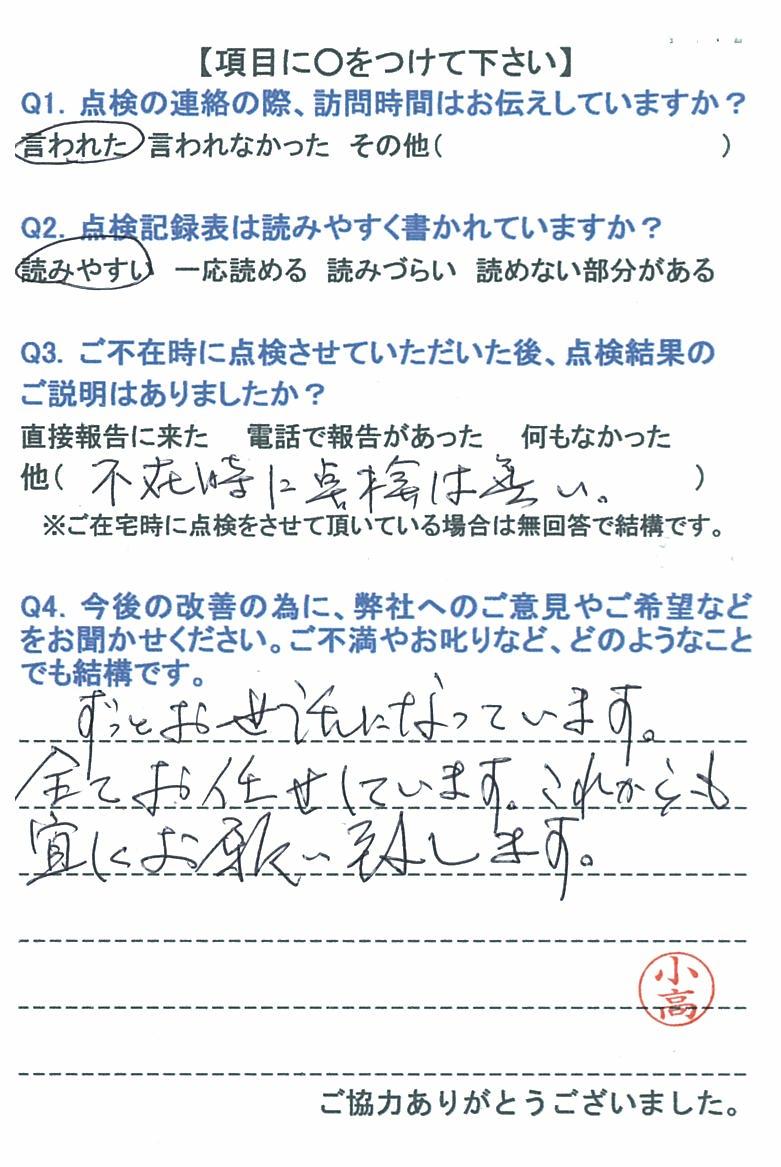 【項目に〇をつけて下さい】
Q1. 点検の連絡の際、訪問時間はお伝えしていますか？
言われた 言われなかった その他( )
Q2. 点検記録表は読みやすく書かれていますか？
読みやすい 一応読める 読みづらい 読めない部分がある
Q3. ご不在時に点検させていただいた後、点検結果の
ご説明はありましたか？
直接報告に来た 電話で報告があった 何もなかった
他( 不在時に点検は無い。 )
※ご在宅時に点検をさせて頂いている場合は無回答で結構です。
Q4. 今後の改善の為に、弊社へのご意見やご希望など
をお聞かせください。ご不満やお叱りなど、どのようなこと
でも結構です。
ずっとお世話になっています。
全てお任せしています。これからも
宜しくお願い致します。
小高
ご協力ありがとうございました。